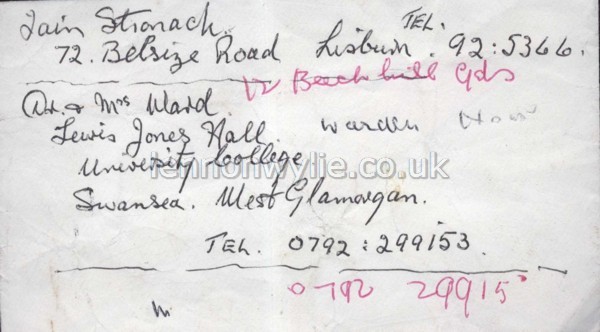 Iain Stronach. TEL.
72. Belsize Road Lisburn. 92:5366.
12 Beechhill Gds
Dr. & Mrs Ward.
Lewis Jones Hall. Warden
University College
lennonwylie.co.uk
Swansea. West Glamorgan.
TEL. 0792:299153.
0792 29915